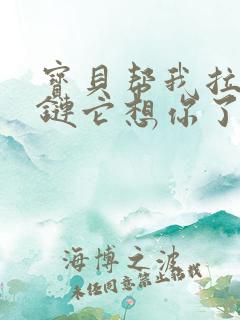 寶貝帮我拉
鏈它想你了
海博之波
未经同意禁止转载